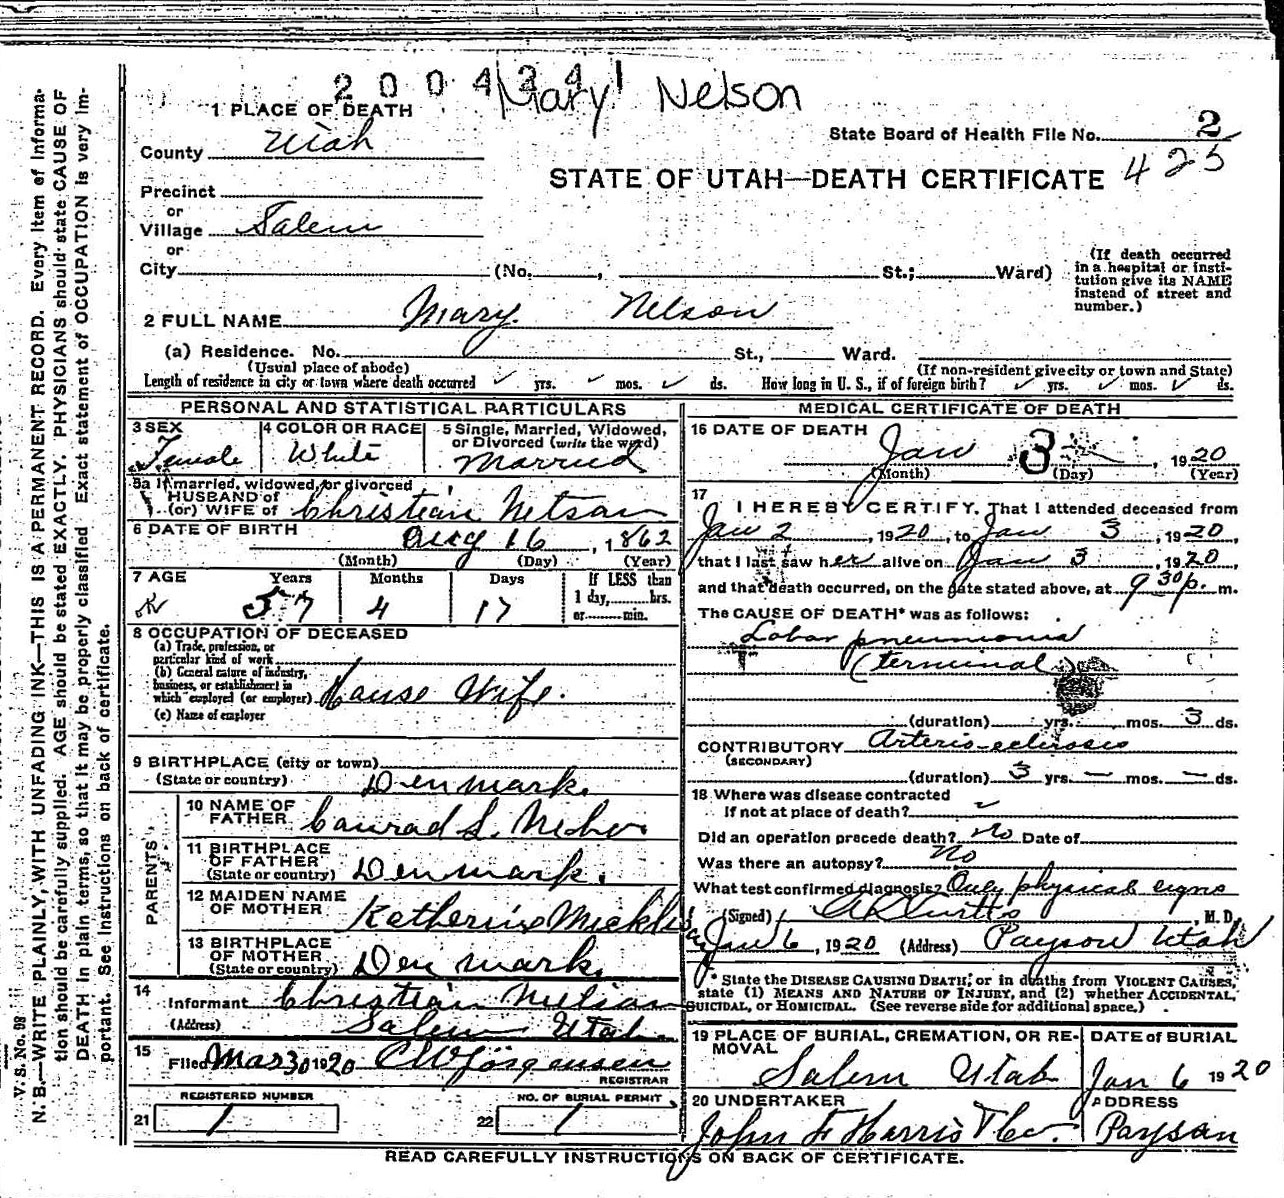 2004341
Mary Nelson
1 PLACE OF DEATH
State Board of Health File No. 2
County Utah
STATE OF UTAH—DEATH CERTIFICATE 425
Precinct
or
Village Salem
or
City (No. , St.; Ward)
(If death occurred
in a hospital or insti-
tution give its NAME
instead of street and
number.)
2 FULL NAME Mary Nelson
(a) Residence. No. St., Ward.
(Usual place of abode) (If non-resident give city or town and State)
Length of residence in city or town where death occurred yrs. mos. ds. How long in U. S., if of foreign birth? yrs. mos. ds.
PERSONAL AND STATISTICAL PARTICULARS
3 SEX
Female
4 COLOR OR RACE
White
5 Single, Married, Widowed,
or Divorced (write the word)
Married
5a If married, widowed, or divorced
HUSBAND of
(or) WIFE of Christian Nelson
6 DATE OF BIRTH Aug 16, 1862
(Month) (Day) (Year)
7 AGE Years Months Days If LESS than
1 day, hrs.
or min.
57 4 17
8 OCCUPATION OF DECEASED
(a) Trade, profession, or
particular kind of work
(b) General nature of industry,
business, or establishment in
which employed (or employer) House Wife.
(c) Name of employer
9 BIRTHPLACE (city or town)
(State or country) Denmark.
PARENTS
10 NAME OF
FATHER Conrad S.
11 BIRTHPLACE
OF FATHER
(State or country) Denmark.
12 MAIDEN NAME
OF MOTHER Katherine
13 BIRTHPLACE
OF MOTHER
(State or country) Denmark.
14
Informant Christian Nelson
(Address) Salem Utah.
15
Filed Mar 30 1920 C W Jorgensen
REGISTRAR
REGISTERED NUMBER
21 1
NO. OF BURIAL PERMIT
22 1
MEDICAL CERTIFICATE OF DEATH
16 DATE OF DEATH
Jan 3, 1920
(Month) (Day) (Year)
17
I HEREBY CERTIFY, That I attended deceased from
Jan 2, 1920, to Jan 3, 1920,
that I last saw her alive on Jan 3, 1920
and that death occurred, on the date stated above, at 9 30 p. m.
The CAUSE OF DEATH* was as follows:
Lobar pneumonia
(terminal)
(duration) yrs. mos. 3 ds.
CONTRIBUTORY Arterio-sclerosis
(SECONDARY)
(duration) 3 yrs. — mos. — ds.
18 Where was disease contracted
if not at place of death?
Did an operation precede death? No Date of
Was there an autopsy? No
What test confirmed diagnosis? Only physical signs
(Signed) Curtis, M. D.
Jan 6, 1920 (Address) Payson Utah
* State the DISEASE CAUSING DEATH, or in deaths from VIOLENT CAUSES,
state (1) MEANS AND NATURE OF INJURY, and (2) whether ACCIDENTAL,
SUICIDAL, or HOMICIDAL. (See reverse side for additional space.)
19 PLACE OF BURIAL, CREMATION, OR RE-
MOVAL
Salem Utah
DATE of BURIAL
Jan 6 1920
20 UNDERTAKER
John F Harris & Co.
ADDRESS
Payson
READ CAREFULLY INSTRUCTIONS ON BACK OF CERTIFICATE.
V. S. No. 98
N. B.—WRITE PLAINLY, WITH UNFADING INK—THIS IS A PERMANENT RECORD. Every item of informa-
tion should be carefully supplied. AGE should be stated EXACTLY. PHYSICIANS should state CAUSE OF
DEATH in plain terms, so that it may be properly classified. Exact statement of OCCUPATION is very im-
portant. See instructions on back of certificate.